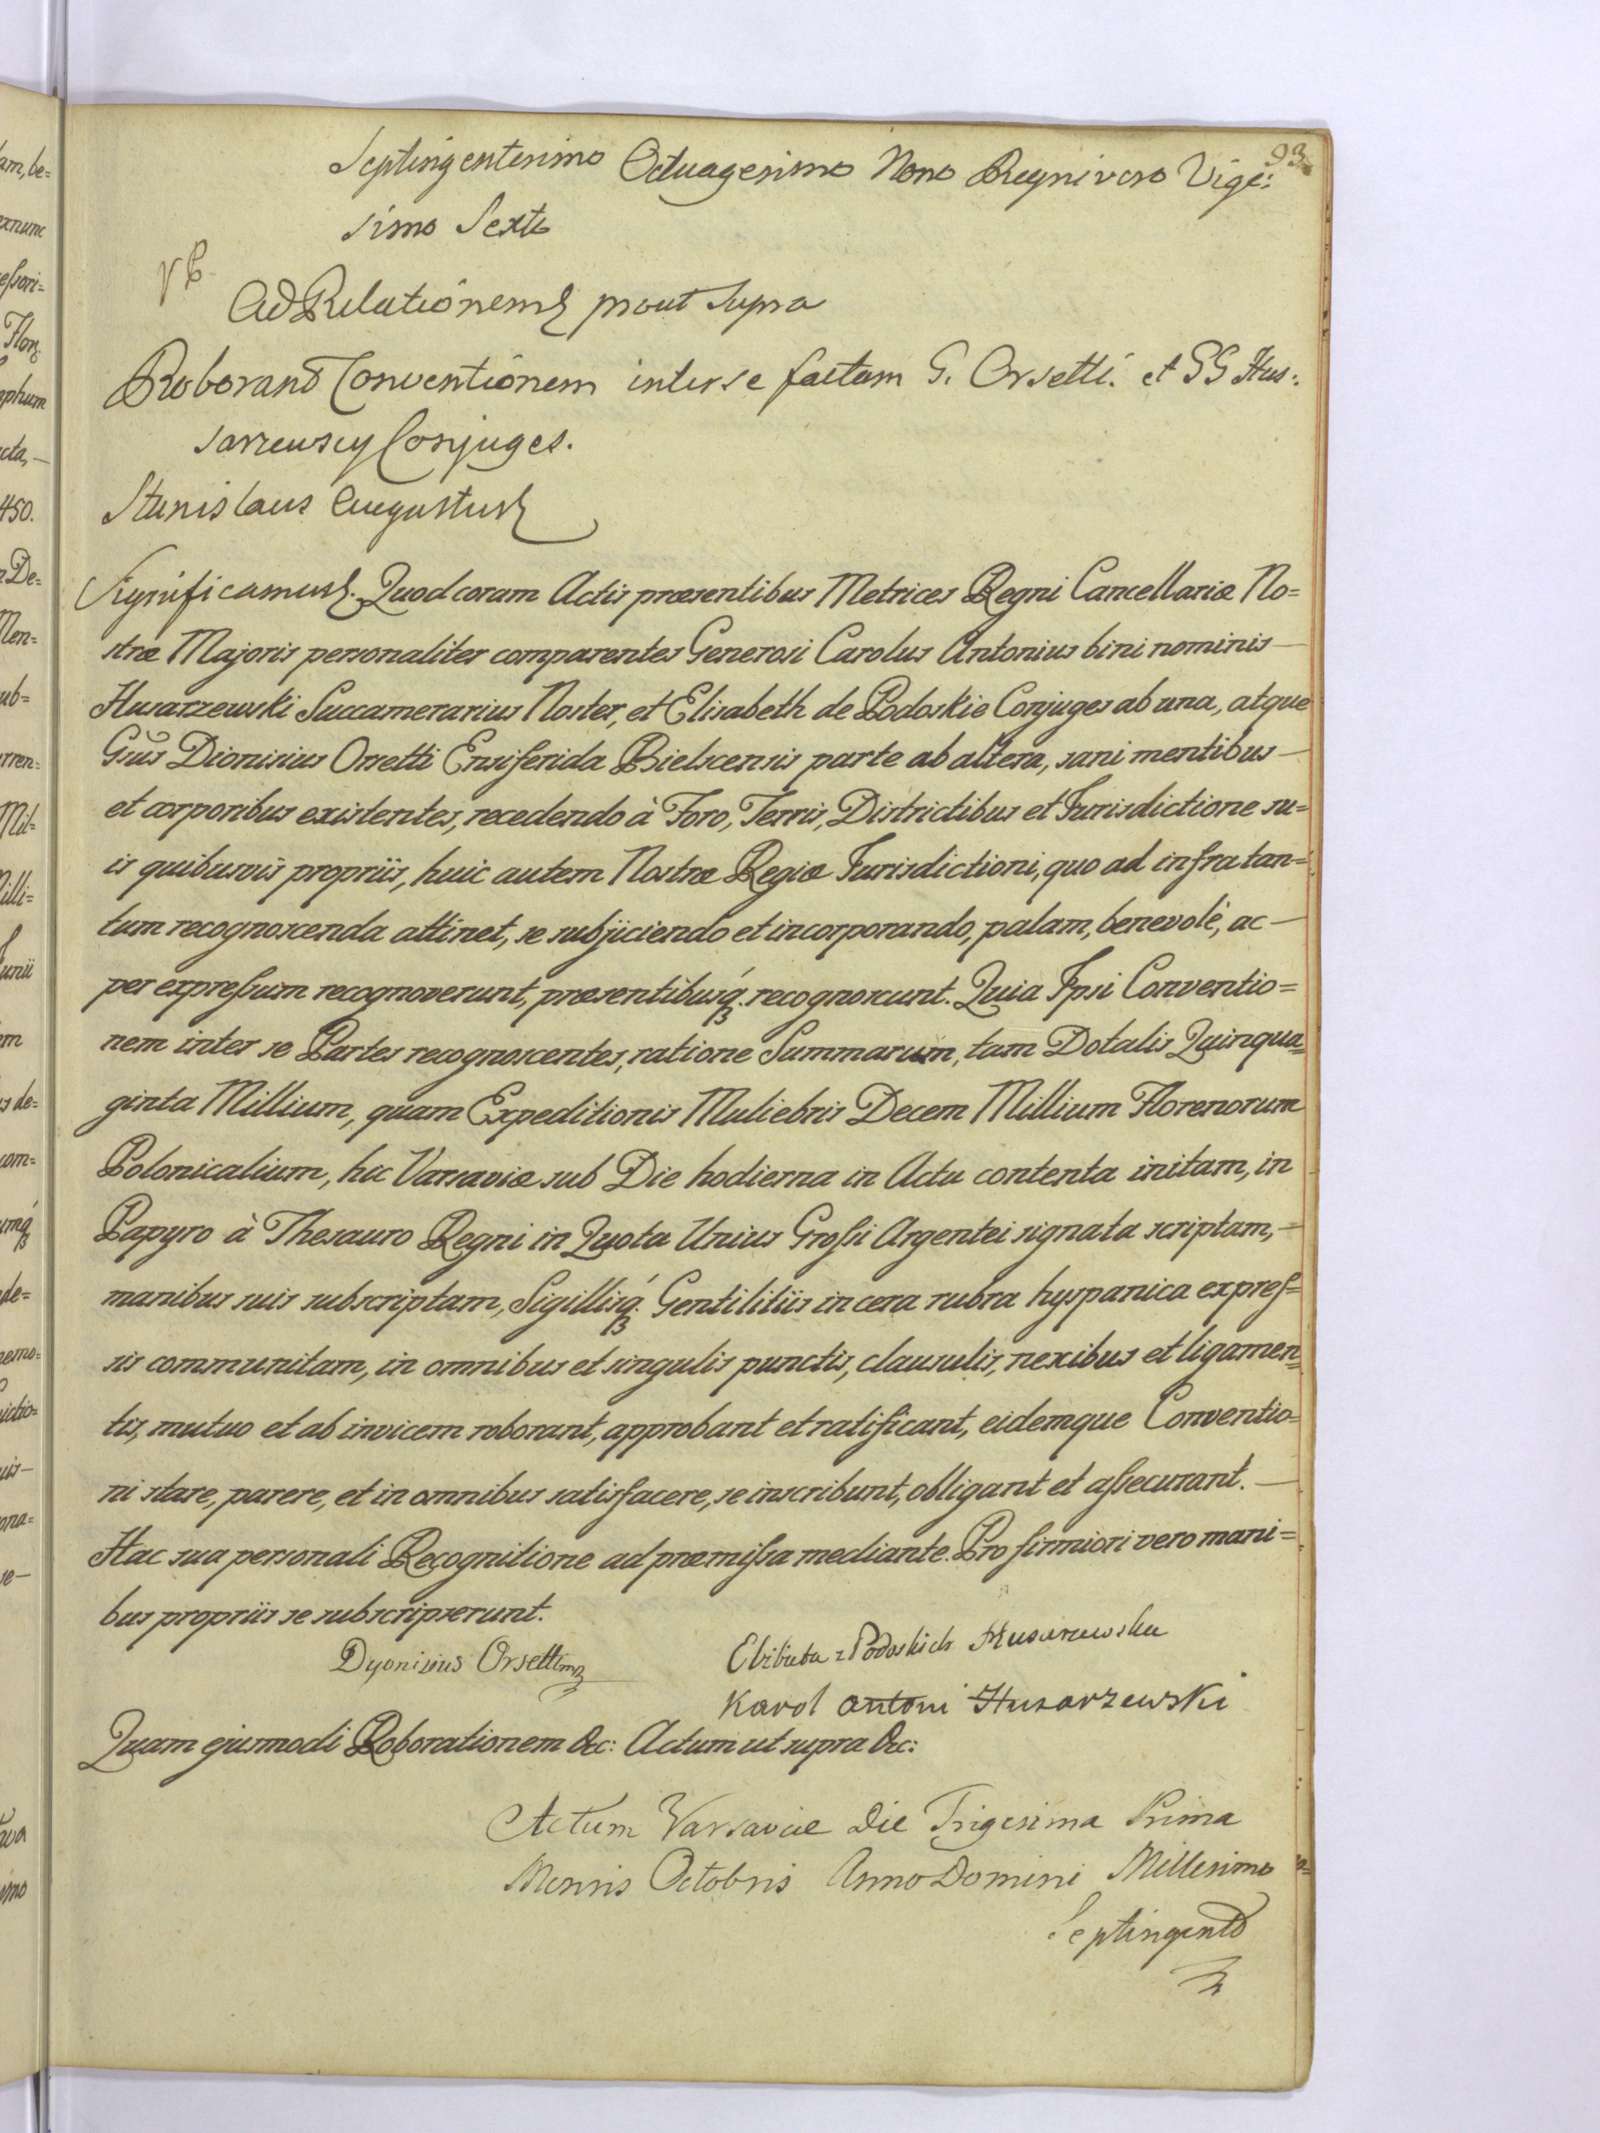 93.
Septingentesimo Octuagesimo Nono Regni vero Vige:
simo Sexto
Ad Relationem prout supra
Roborant Conventionem inter se factam G. Orsetti. et GG Hus:
sarzewscy Conjuges.
Stanislaus Augustus
Significamus. Quod coram Actis præsentibus Metrices Regni Cancellariæ No=
stræ Majoris personaliter comparentes Generosi Carolus Antonius bini nominis —
Husarzewski Succamerarius Noster, et Elisabeth de Podoskie Conjuges ab una, atque
Gsus Dionisius Orsetti Ensiferida Bielscensis parte ab altera, sani mentibus —
et corporibus existentes, recedendo à Foro, Terris, Districtibus et Jurisdictione su=
is quibusvis propriis, huic autem Nostræ Regiæ Jurisdictioni, quo ad infra tan=
tum recognoscenda attinet, se subjiciendo et incorporando, palam, benevolè, ac —
per expreſsum recognoverunt, præsentibusq́. recognoscunt. Quia Ipsi Conventio=
nem inter se Partes recognoscentes, ratione Summarum, tam Dotalis Quinqua=
ginta Millium, quam Expeditionis Muliebris Decem Millium Florenorum
Polonicalium, hic Varsaviæ sub Die hodierna in Actu contenta initam, in
Papyro à Thesauro Regni in Quota Unius Groſsi Argentei signata scriptam, =
manibus suis subscriptam, Sigillisq́. Gentilitiis in cera rubra hyspanica expreſ=
sis communitam, in omnibus et singulis punctis, clausulis, nexibus et ligamen=
tis, mutuo et ab invicem roborant, approbant et ratificant, eidemque Conventio=
ni stare, parere, et in omnibus satisfacere, se inscribunt, obligant et aſsecurant. —
Hac sua personali Recognitione ad præmiſsa mediante. Pro firmiori vero mani=
bus propriis se subscripserunt.
Dyonisius Orsetti
Elżbieta z Podoskich Husarzewska
Karol Antoni Husarzewski
Quam ejusmodi Roborationem &c: Actum ut supra &c:
Actum Varsaviæ Die Trigesima Prima
Mensis Octobris Anno Domini Millesimo
Septingento